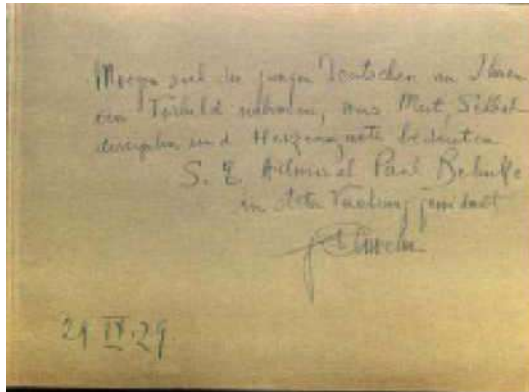 Mögen sich die jungen Deutschen an Ihnen
ein Vorbild nehmen, was Mut, Selbst
disciplin und Herzensgüte bedeuten
S. E. Admiral Paul Behncke
in alter Verehrung
29 IX. 29